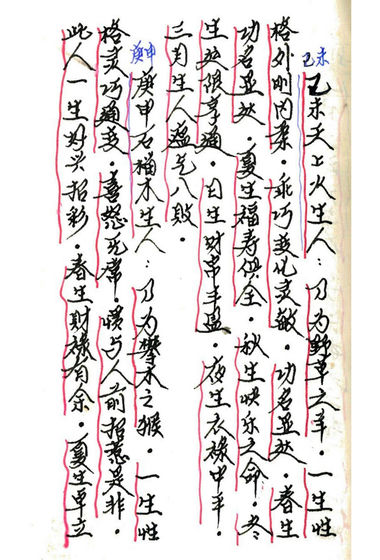 己未
己未天上火生人:乃为野草之羊.一生性
格外刚内柔.乖巧变化灵敏.功名显达.春生
功名显达.夏生福寿俱全.秋生快乐之命.冬
生处限享通.日生财帛丰盈.夜生衣禄中平.
三月生人八败.
庚申
庚申石榴木生人:乃为攀木之猴.一生性
格灵巧通变.喜怒无常.惯与人前招惹是非.
此人一生好头招彩.春生财禄有余.夏生单立